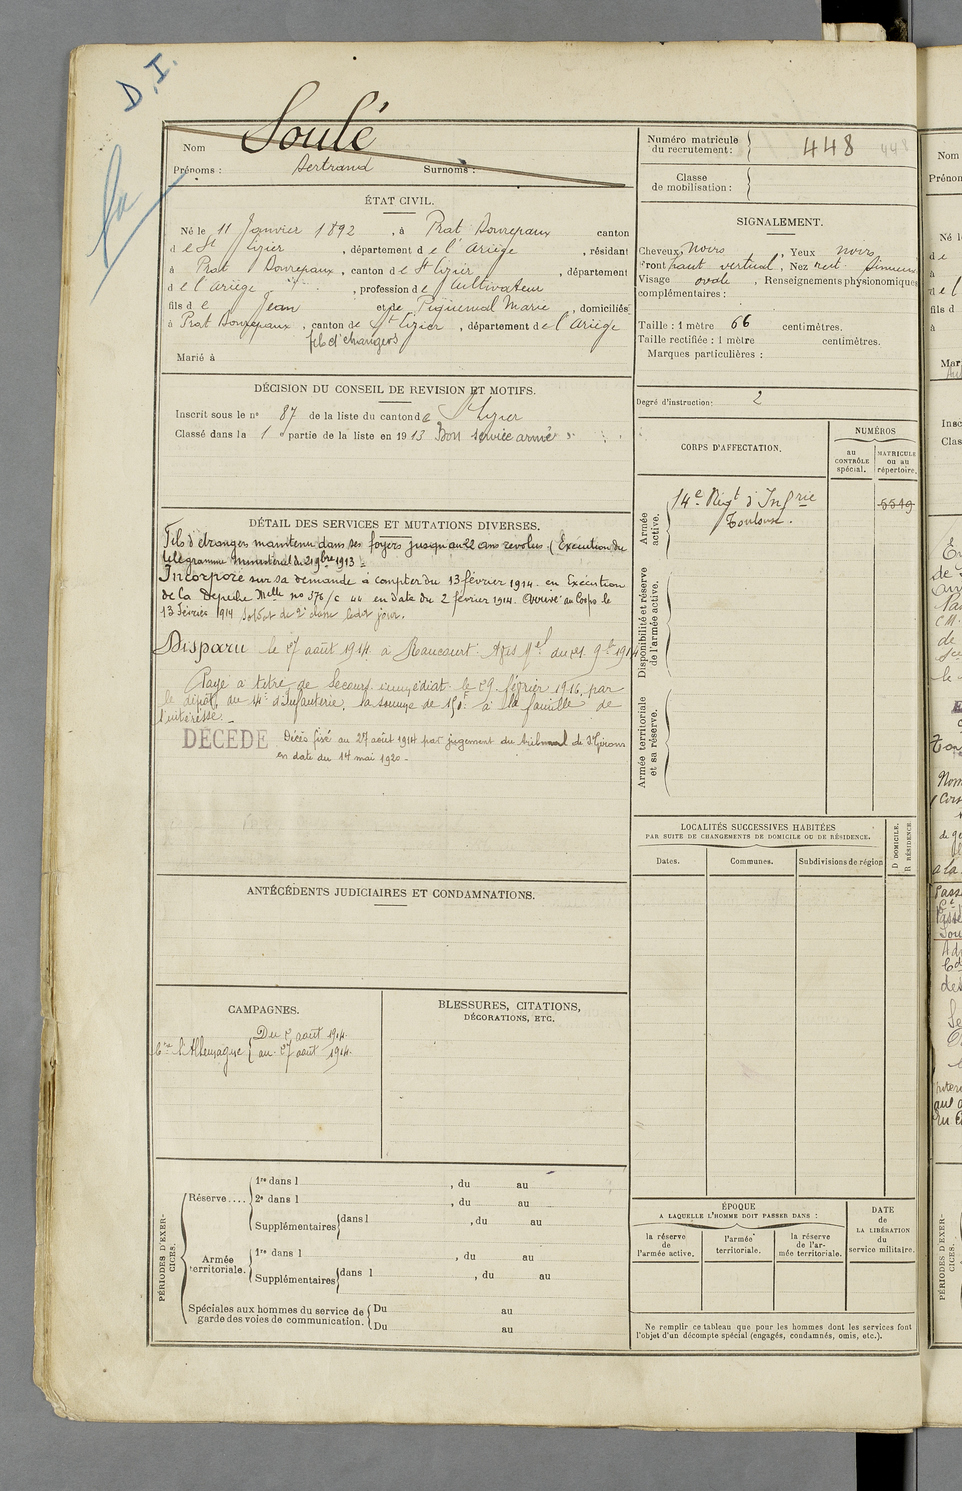 D.I.
Nom Soulé
Prénoms : Bertrand Surnoms :
ÉTAT CIVIL.
Né le 11 Janvier 1892, à Prat Bonrepaux canton
de St Lizier, département de l'Ariège, résidant
à Prat Bonrepaux, canton de St Lizier, département
de l'Ariège, profession de Cultivateur
fils de Jean et de Piquemal Marie, domiciliés
à Prat Bonrepaux, canton de St Lizier, département de l'Ariège
fils d'étrangers
Marié à
DÉCISION DU CONSEIL DE REVISION ET MOTIFS.
Inscrit sous le n° 87 de la liste du canton de St Lizier
Classé dans la 1e partie de la liste en 1913 Bon service armé
DÉTAIL DES SERVICES ET MUTATIONS DIVERSES.
Fils d'étrangers maintenu dans ses foyers jusqu'au 22 ans revolus (Execution du
télégramme Ministériel du 21 9bre 1913.
Incorporé sur sa demande à compter du 13 février 1914 en Exécution
de la Dépêche Mlle no 376/c 44 en date du 2 février 1914. Arrivé au Corps le
13 Février 1914 Soldat de 2e classe ledit jour.
Disparu le 27 août 1914 à Raucourt. Avis Mel du 21 9bre 1914
Payé à titre de Secours immédiat le 29 février 1916, par
le dépôt du 14e d'Infanterie, la somme de 150f à la famille de
l'intéressé.
DÉCÉDÉ Décès fixé au 27 août 1914 par jugement du tribunal de St Girons
en date du 14 mai 1920.
ANTÉCÉDENTS JUDICIAIRES ET CONDAMNATIONS.
CAMPAGNES.
Cre l'Allemagne { Du 2 août 1914.
au 27 août 1914.
BLESSURES, CITATIONS,
DÉCORATIONS, ETC.
PÉRIODES D'EXERCICES.
Réserve....
1re dans l , du au
2e dans l , du au
Supplémentaires dans l , du au
Armée territoriale.
1re dans l , du au
Supplémentaires dans l , du au
Spéciales aux hommes du service de
garde des voies de communication.
Du au
Du au
Numéro matricule
du recrutement : 448
Classe
de mobilisation :
SIGNALEMENT.
Cheveux noirs, Yeux noirs
Front haut vertical, Nez rect. Sinueux
Visage ovale, Renseignements physionomiques
complémentaires :
Taille : 1 mètre 66 centimètres.
Taille rectifiée : 1 mètre centimètres.
Marques particulières :
Degré d'instruction : 2
CORPS D'AFFECTATION.
NUMÉROS
au
CONTRÔLE
spécial.
MATRICULE
ou au
répertoire.
Armée
active.
14e Régt d'Infrie 5549
Toulouse.
Disponibilité et réserve
de l'armée active.
Armée territoriale
et sa réserve.
LOCALITÉS SUCCESSIVES HABITÉES
PAR SUITE DE CHANGEMENTS DE DOMICILE OU DE RÉSIDENCE.
Dates.
Communes.
Subdivisions de région
D DOMICILE.
R RÉSIDENCE
ÉPOQUE
A LAQUELLE L'HOMME DOIT PASSER DANS :
la réserve
de
l'armée active.
l'armée
territoriale.
la réserve
de l'ar-
mée territoriale.
DATE
de
LA LIBÉRATION
du
service militaire.
Ne remplir ce tableau que pour les hommes dont les services font
l'objet d'un décompte spécial (engagés, condamnés, omis, etc.).